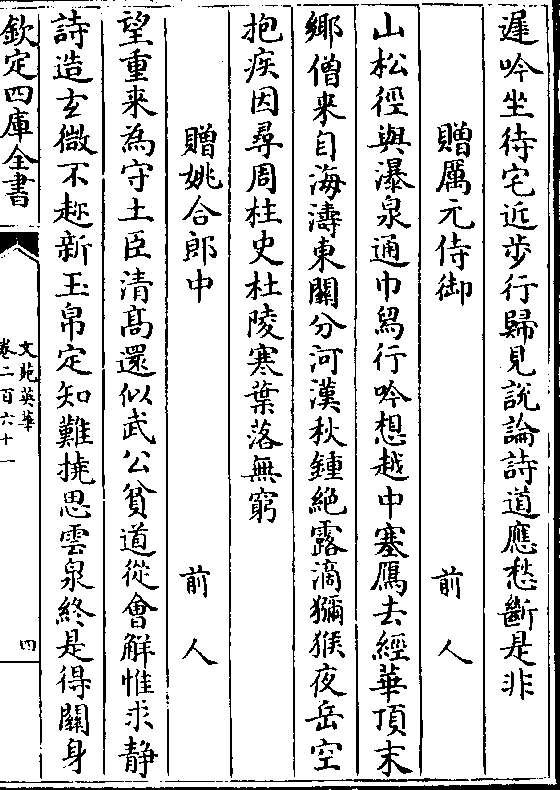 遲吟坐待宅近步行歸見說論詩道應愁斷是非
贈厲元侍御 前人
山松徑與瀑泉通巾舄行吟想越中塞鴈去經華頂末
鄉僧来自海濤東關分河漢秋鍾絶露滴獼猴夜岳空
抱疾因尋周柱史杜陵寒葉落無窮
贈姚合郎中 前人
望重来為守土臣清髙還似武公貧道從會解惟求静
詩造玄微不趂新玉帛定知難撓思雲泉終是得關身
欽定四庫全書
文苑英華
卷二百六十一
四